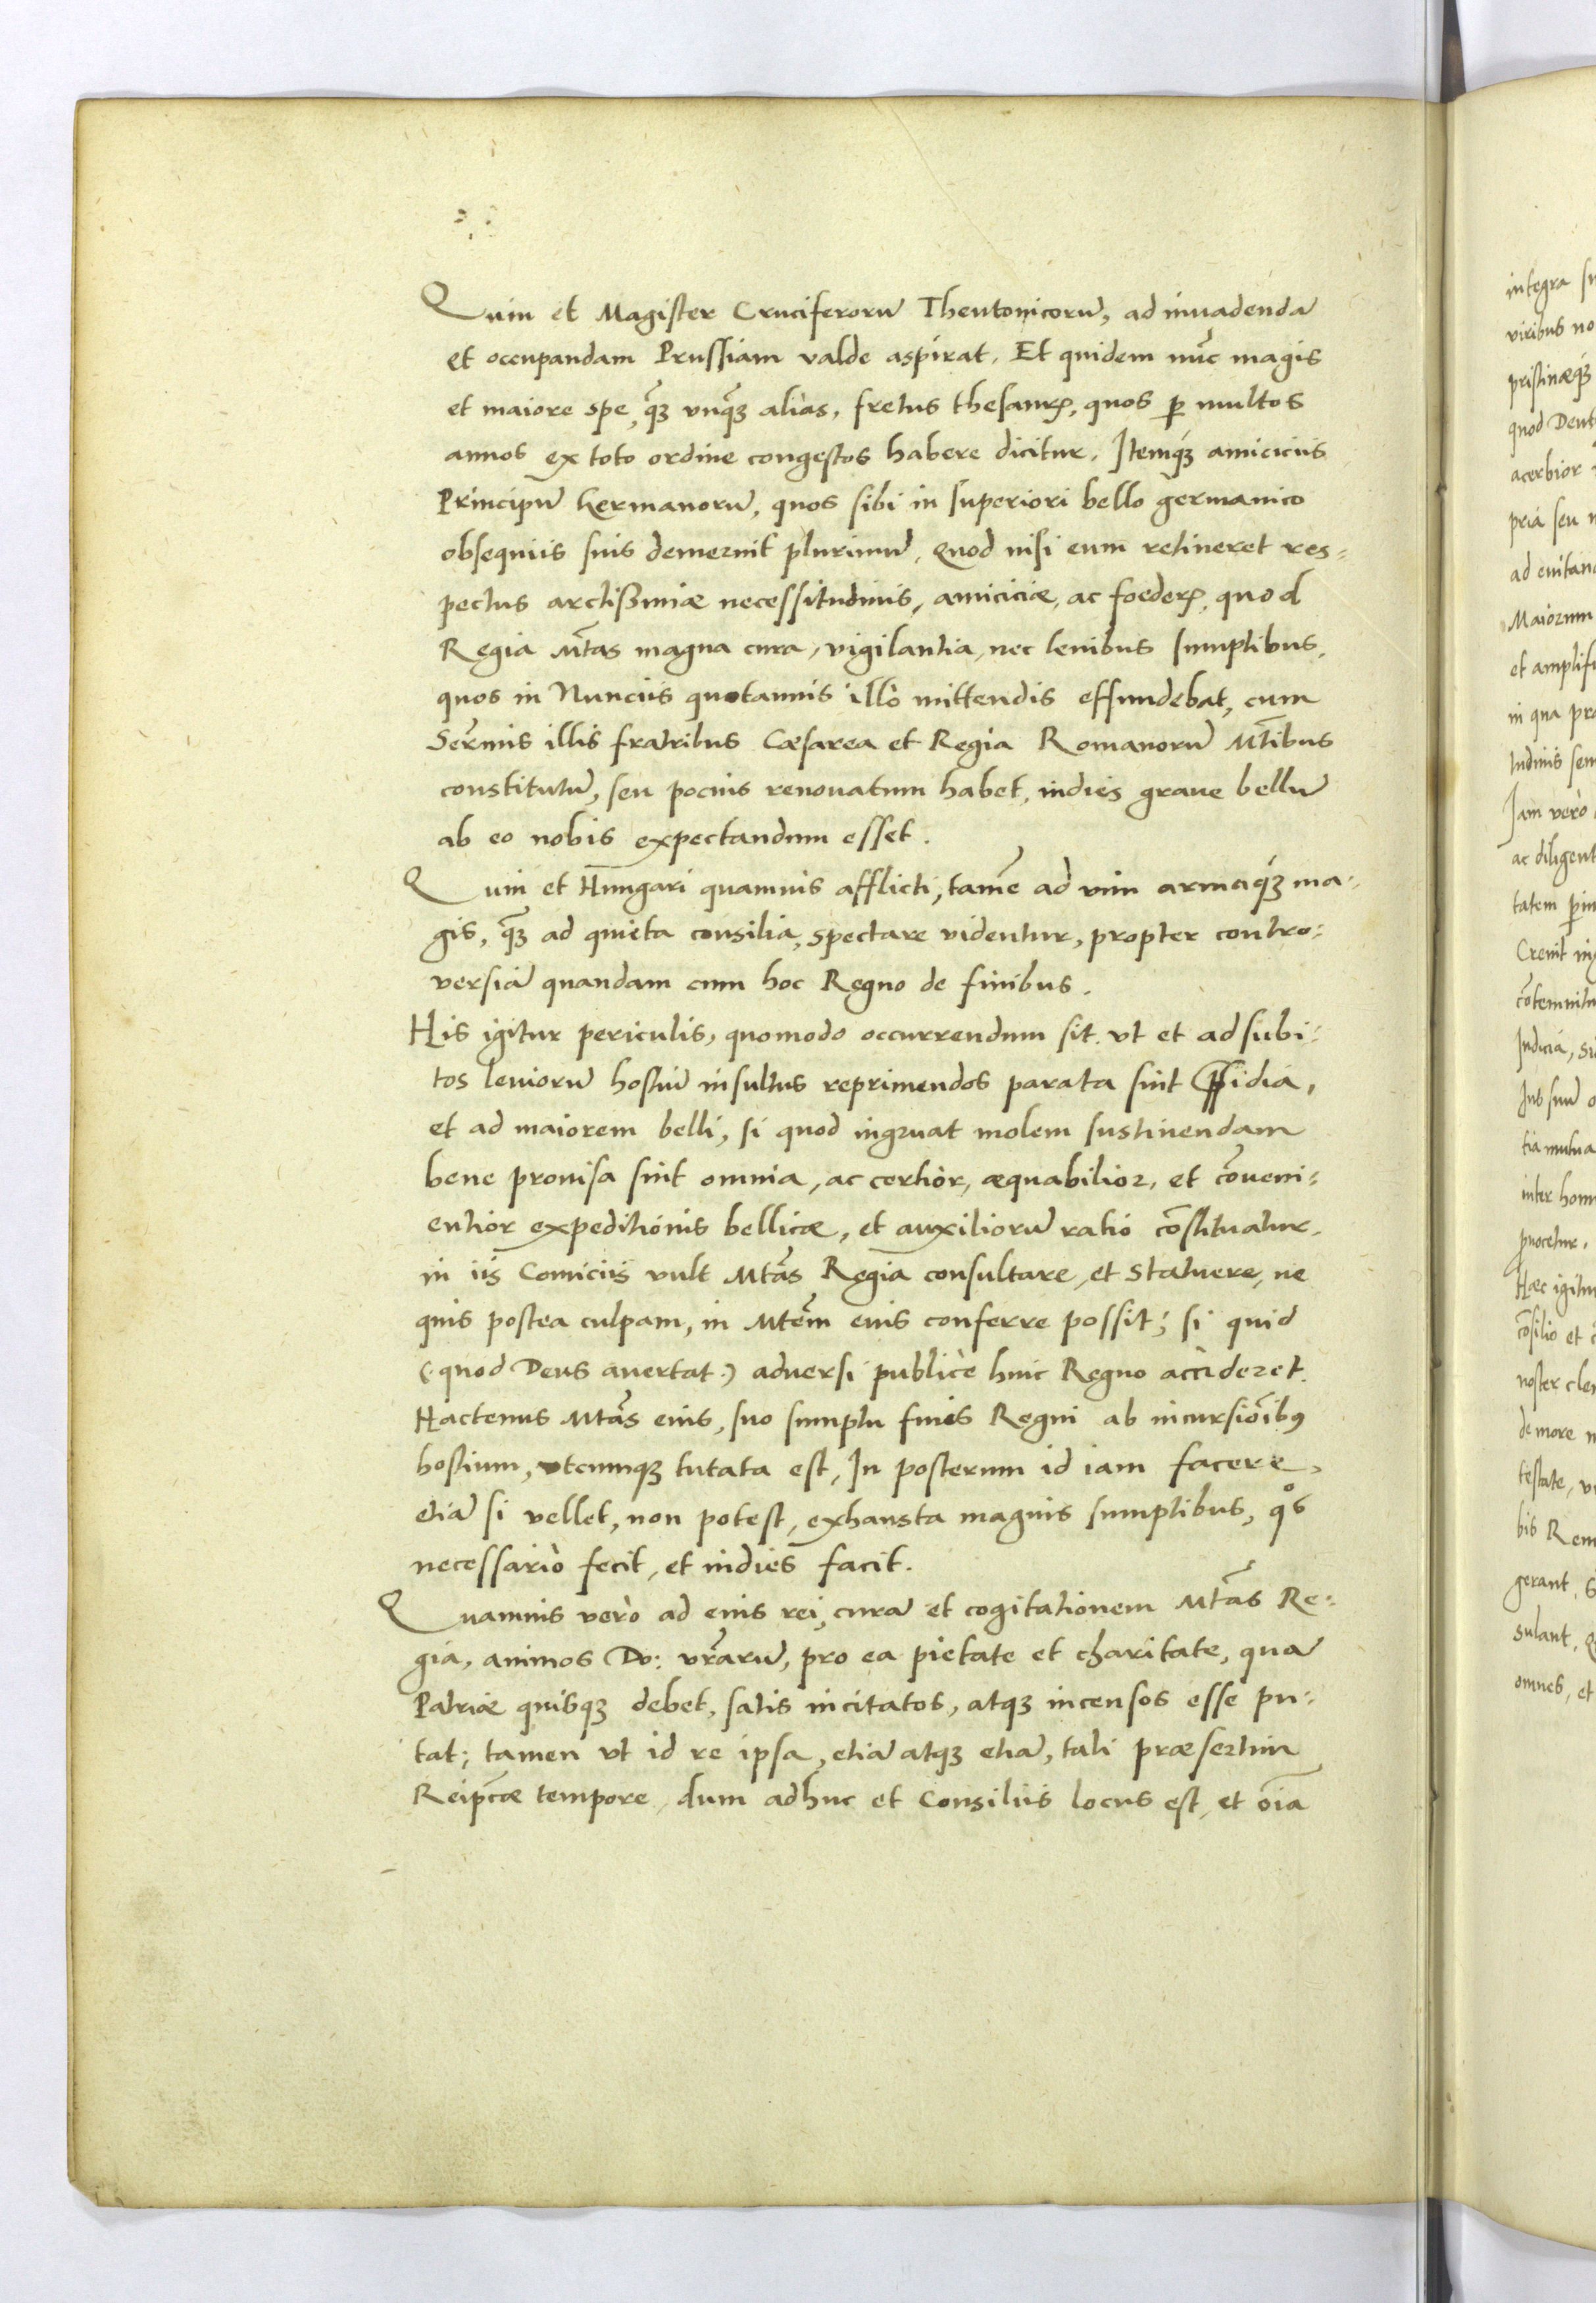 Quin et Magister Cruciferorū Theutonicorū, ad inuadendā
et occupandam Prussiam valde aspirat. Et quidem nūc magis
et maiore spe, q̄ꝫ vnq̄ꝫ alias, fretus thesaurꝭ, quos ꝑ multos
annos ex toto ordine congestos habere dicitur. Itemq́ꝫ amiciciis
Principū Germanorū, quos sibi in superiori bello germanico
obsequiis suis demeruit plurimū, Quod nisi eum retineret res=
pectus arctissimæ necessitudinis, amiciciæ, ac foederꝭ, quod
Regia Mt̄as magna cura, vigilantia, nec leuibus sumptibus,
quos in Nunciis quotannis illò mittendis effundebat, cum
Serm̄is illis fratribus Cæsarea et Regia Romanorū Mt̄ibus
constitutū, seu pocius renouatum habet, indies graue bellū
ab eo nobis expectandum esset.
Quin et Hungari quamuis afflicti, tamē ad vim armaq́ꝫ ma-
gis, q̄ꝫ ad quieta consilia, spectare videntur, propter contro-
versiā quandam cum hoc Regno de finibus.
His igitur periculis, quomodo occurrendum sit, vt et ad subi-
tos leuiorū hostiū insultus reprimendos parata sint p̄sidia,
et ad maiorem belli, si quod ingruat molem sustinendam
bene prouisa sint omnia, ac certior, æquabilior, et cōueni-
entior expeditionis bellicæ, et auxiliorū ratio cōstituatur,
in iis Comiciis vult Mt̄as Regia consultare, et statuere, ne
quis postea culpam, in Mtēm eius conferre possit; si quid
(quod Deus auertat) aduersi publicè huic Regno accideret.
Hactenus Mt̄as eius, suo sumptu fines Regni ab incursiōibꝰ
hostium, vtcumqꝫ tutata est, In posterum id iam facere,
etiā si vellet, non potest, exhausta magnis sumptibus, qͦs
necessariò fecit, et indies facit.
Quamuis verò ad eius rei, curā et cogitationem Mt̄as Re-
gia, animos Do: vr̄arū, pro ea pietate et charitate, quā
Patriæ quisqꝫ debet, satis incitatos, atqꝫ incensos esse pu-
tat; tamen vt id re ipsa, etiā atqꝫ etiā, tali præsertim
Reipc̄æ tempore, dum adhuc et Consiliis locus est, et oīa
integra
viribus
pristinæq́ꝫ
quod
acerbior
pria seu
ad
Maiorum
et
in qua
tudinis
Iam verò
ac
tatem
Creuit
Iudicia,
sub suū
tia mutua
inter
Hæc
cōsilio et
noster
de more
testate,
bis
gerant,
sulant,
omnes, et